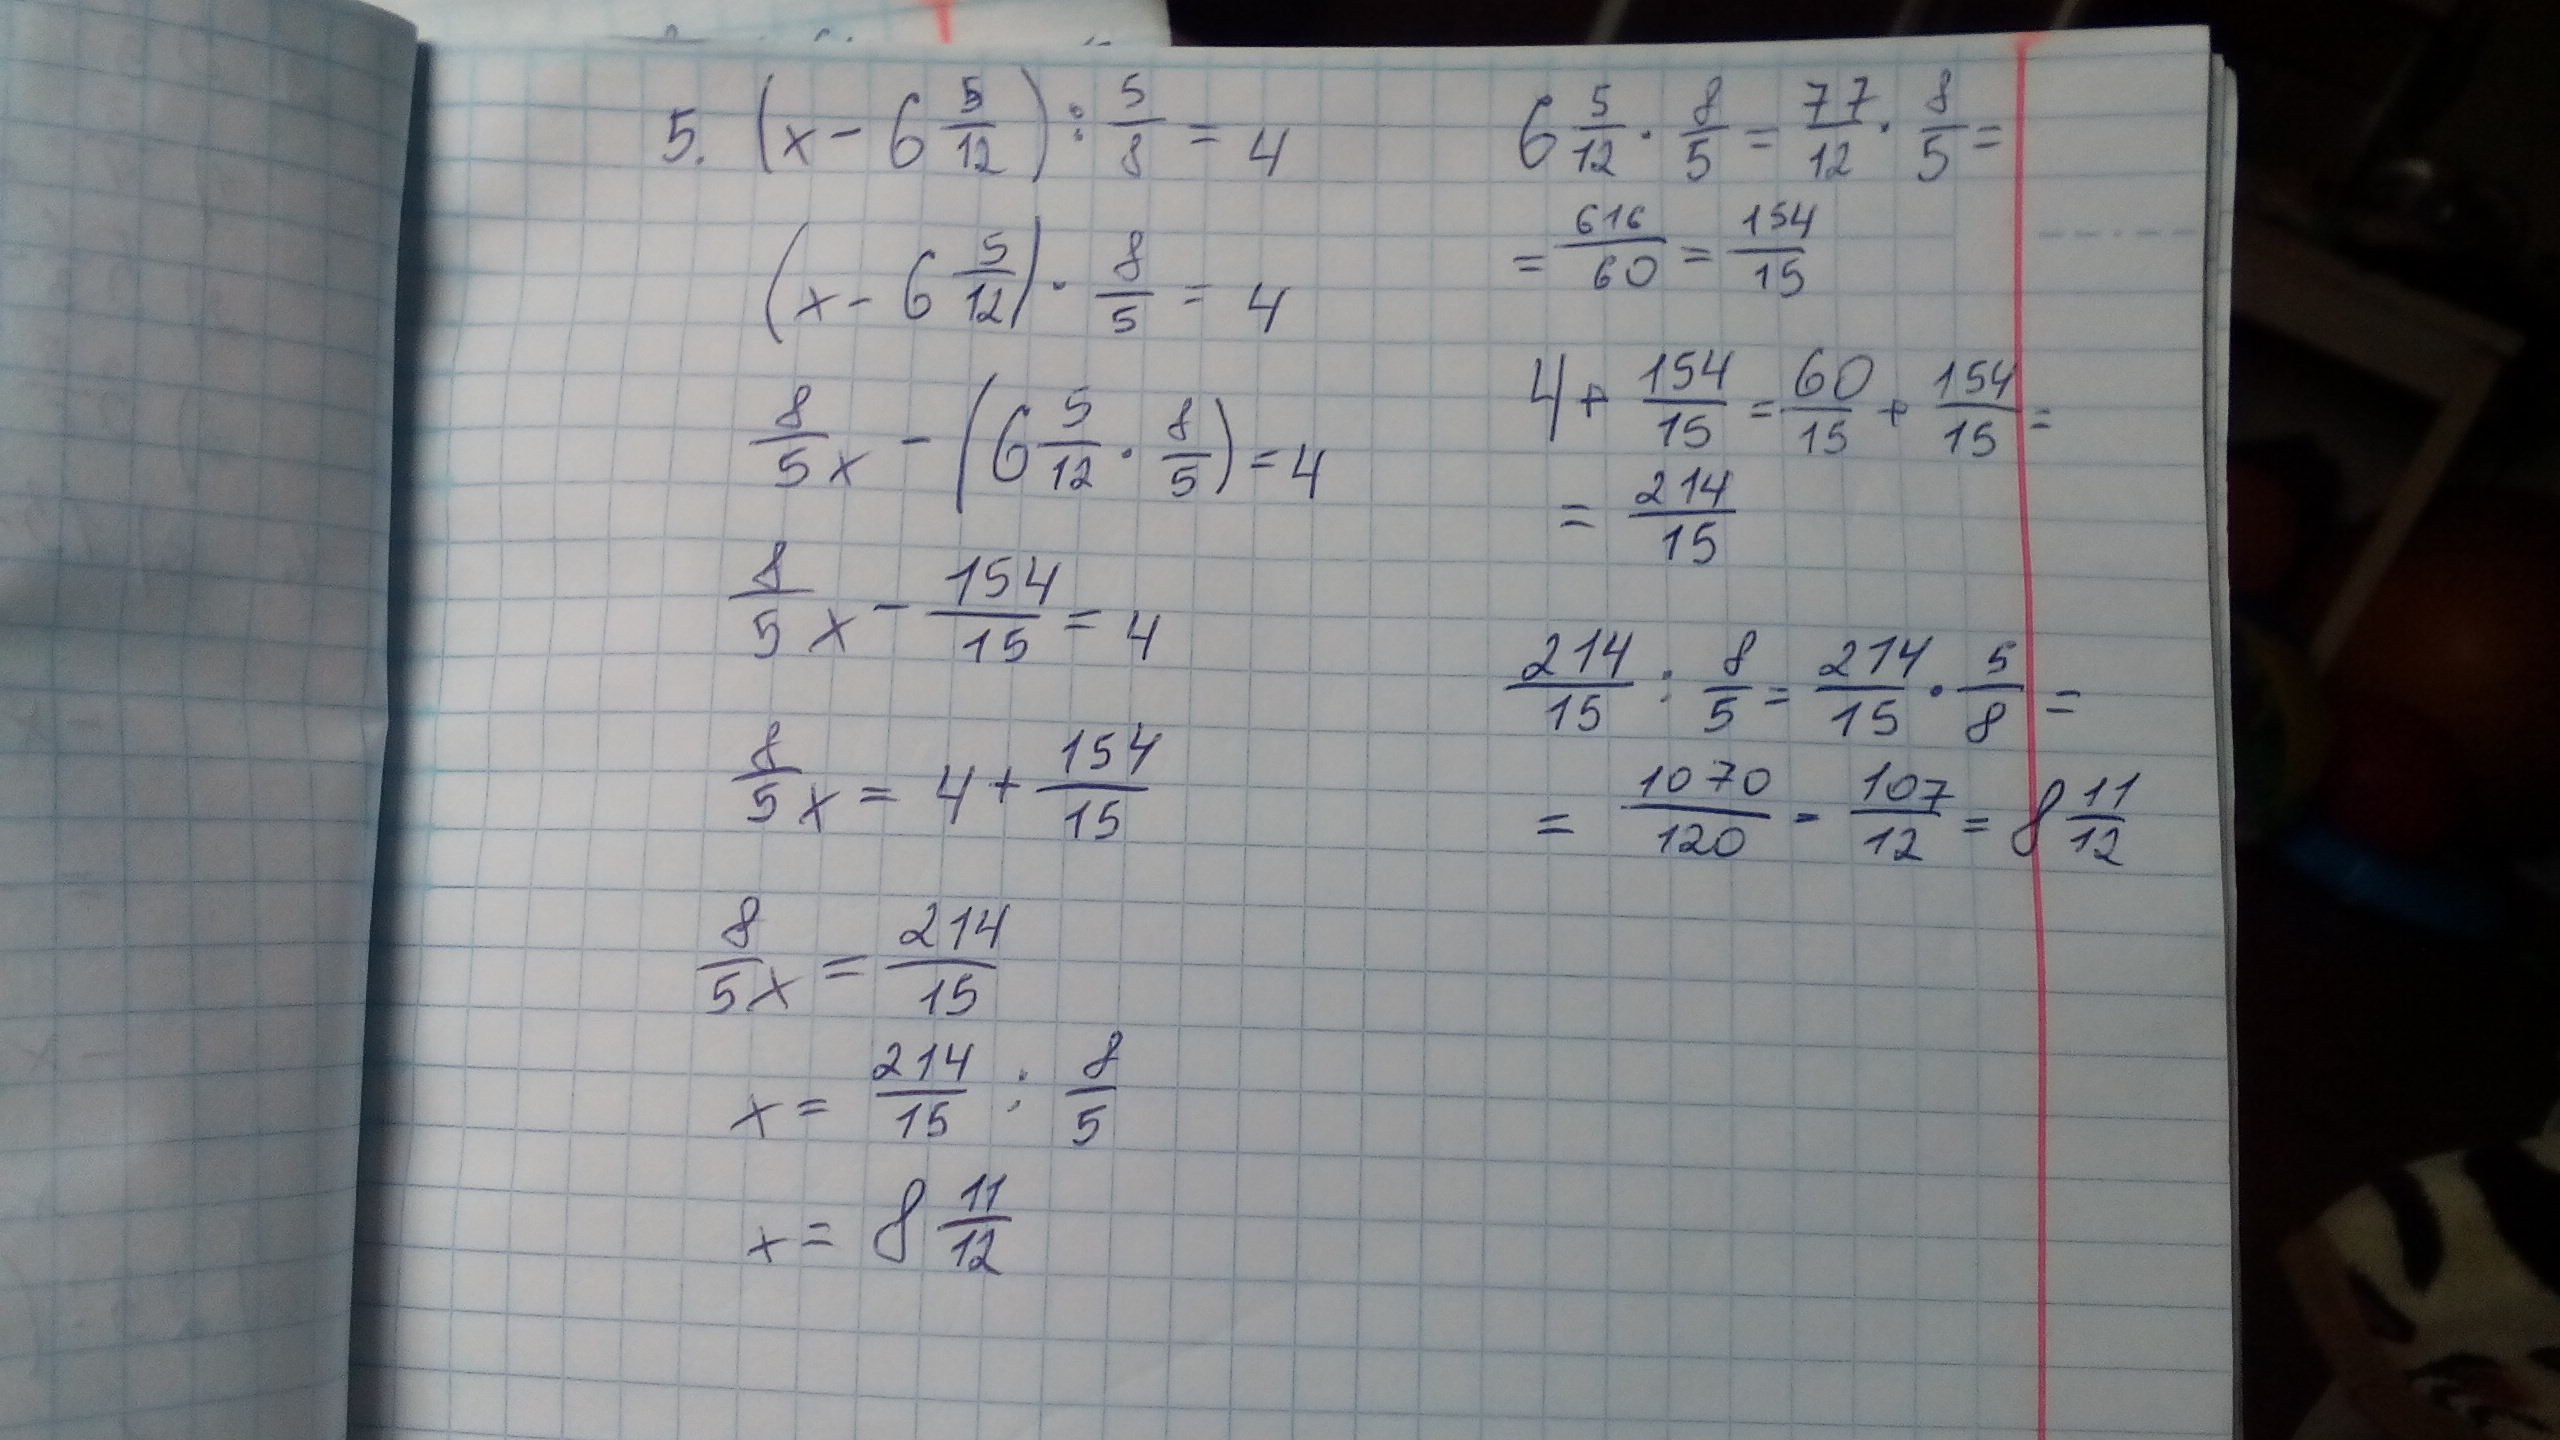 5. (x - 6 5/12) : 5/8 = 4
(x - 6 5/12) · 8/5 = 4
8/5 x - (6 5/12 · 8/5) = 4
8/5 x - 154/15 = 4
8/5 x = 4 + 154/15
8/5 x = 214/15
x = 214/15 : 8/5
x = 8 11/12
6 5/12 · 8/5 = 77/12 · 8/5 =
= 616/60 = 154/15
4 + 154/15 = 60/15 + 154/15 =
= 214/15
214/15 : 8/5 = 214/15 · 5/8 =
= 1070/120 = 107/12 = 8 11/12